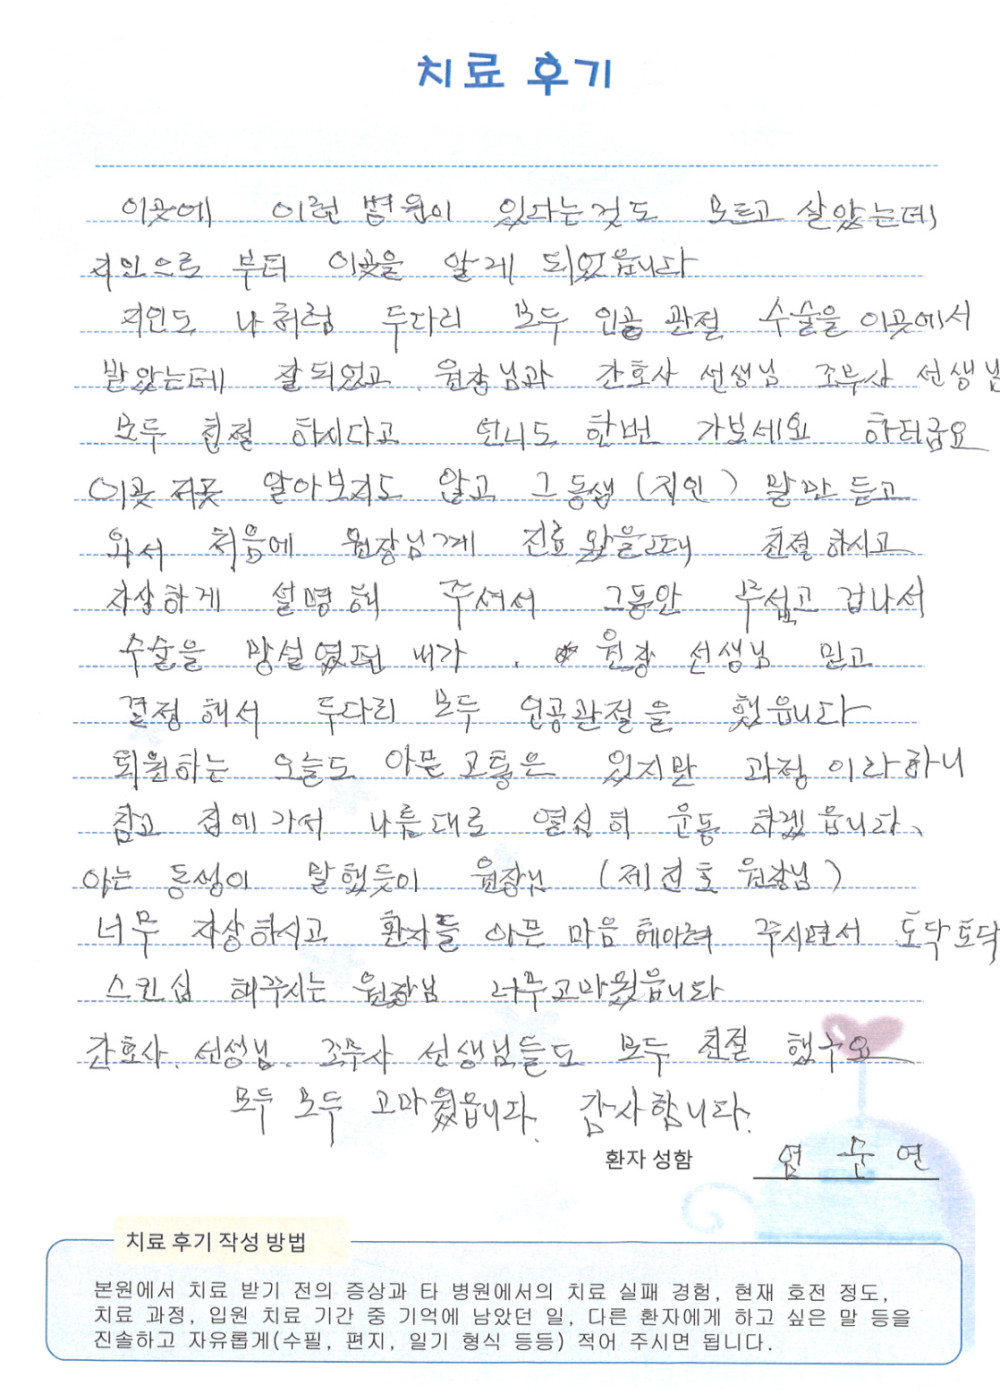 치료 후기
이곳에 이런 병원이 있다는것도 모르고 살았는데,
지인으로 부터 이곳을 알게 되었읍니다
지인도 나처럼 두다리 모두 인공 관절 수술을 이곳에서
받았는데 잘되었고 원장님과 간호사 선생님 조무사 선생님
모두 친절 하시다고 언니도 한번 가보세요 하더금요
이곳 저곳 알아보지도 않고 그동생 (지인) 말만 듣고
와서 처음에 원장님께 진료 왔을때 친절하시고
자상하게 설명해 주셔서 그동안 무섭고 겁나서
수술을 망설였던 내가 . 원장 선생님 믿고
결정해서 두다리 모두 인공관절을 했읍니다
퇴원하는 오늘도 아픈고통은 있지만 과정이라하니
참고 집에가서 나름대로 열심히 운동 하겠읍니다.
아는 동생이 말했듯이 원장님 (제진호 원장님)
너무 자상하시고 환자들 아픈 마음 헤아려 주시면서 토닥토닥
스킨십 해주시는 원장님 너무고마웠읍니다
간호사. 선생님. 조무사 선생님들도 모두 친절 했구요
모두 모두 고마웠읍니다. 감사합니다.
환자 성함 엄 순 연
치료 후기 작성 방법
본원에서 치료 받기 전의 증상과 타 병원에서의 치료 실패 경험, 현재 호전 정도,
치료 과정, 입원 치료 기간 중 기억에 남았던 일, 다른 환자에게 하고 싶은 말 등을
진솔하고 자유롭게(수필, 편지, 일기 형식 등등) 적어 주시면 됩니다.